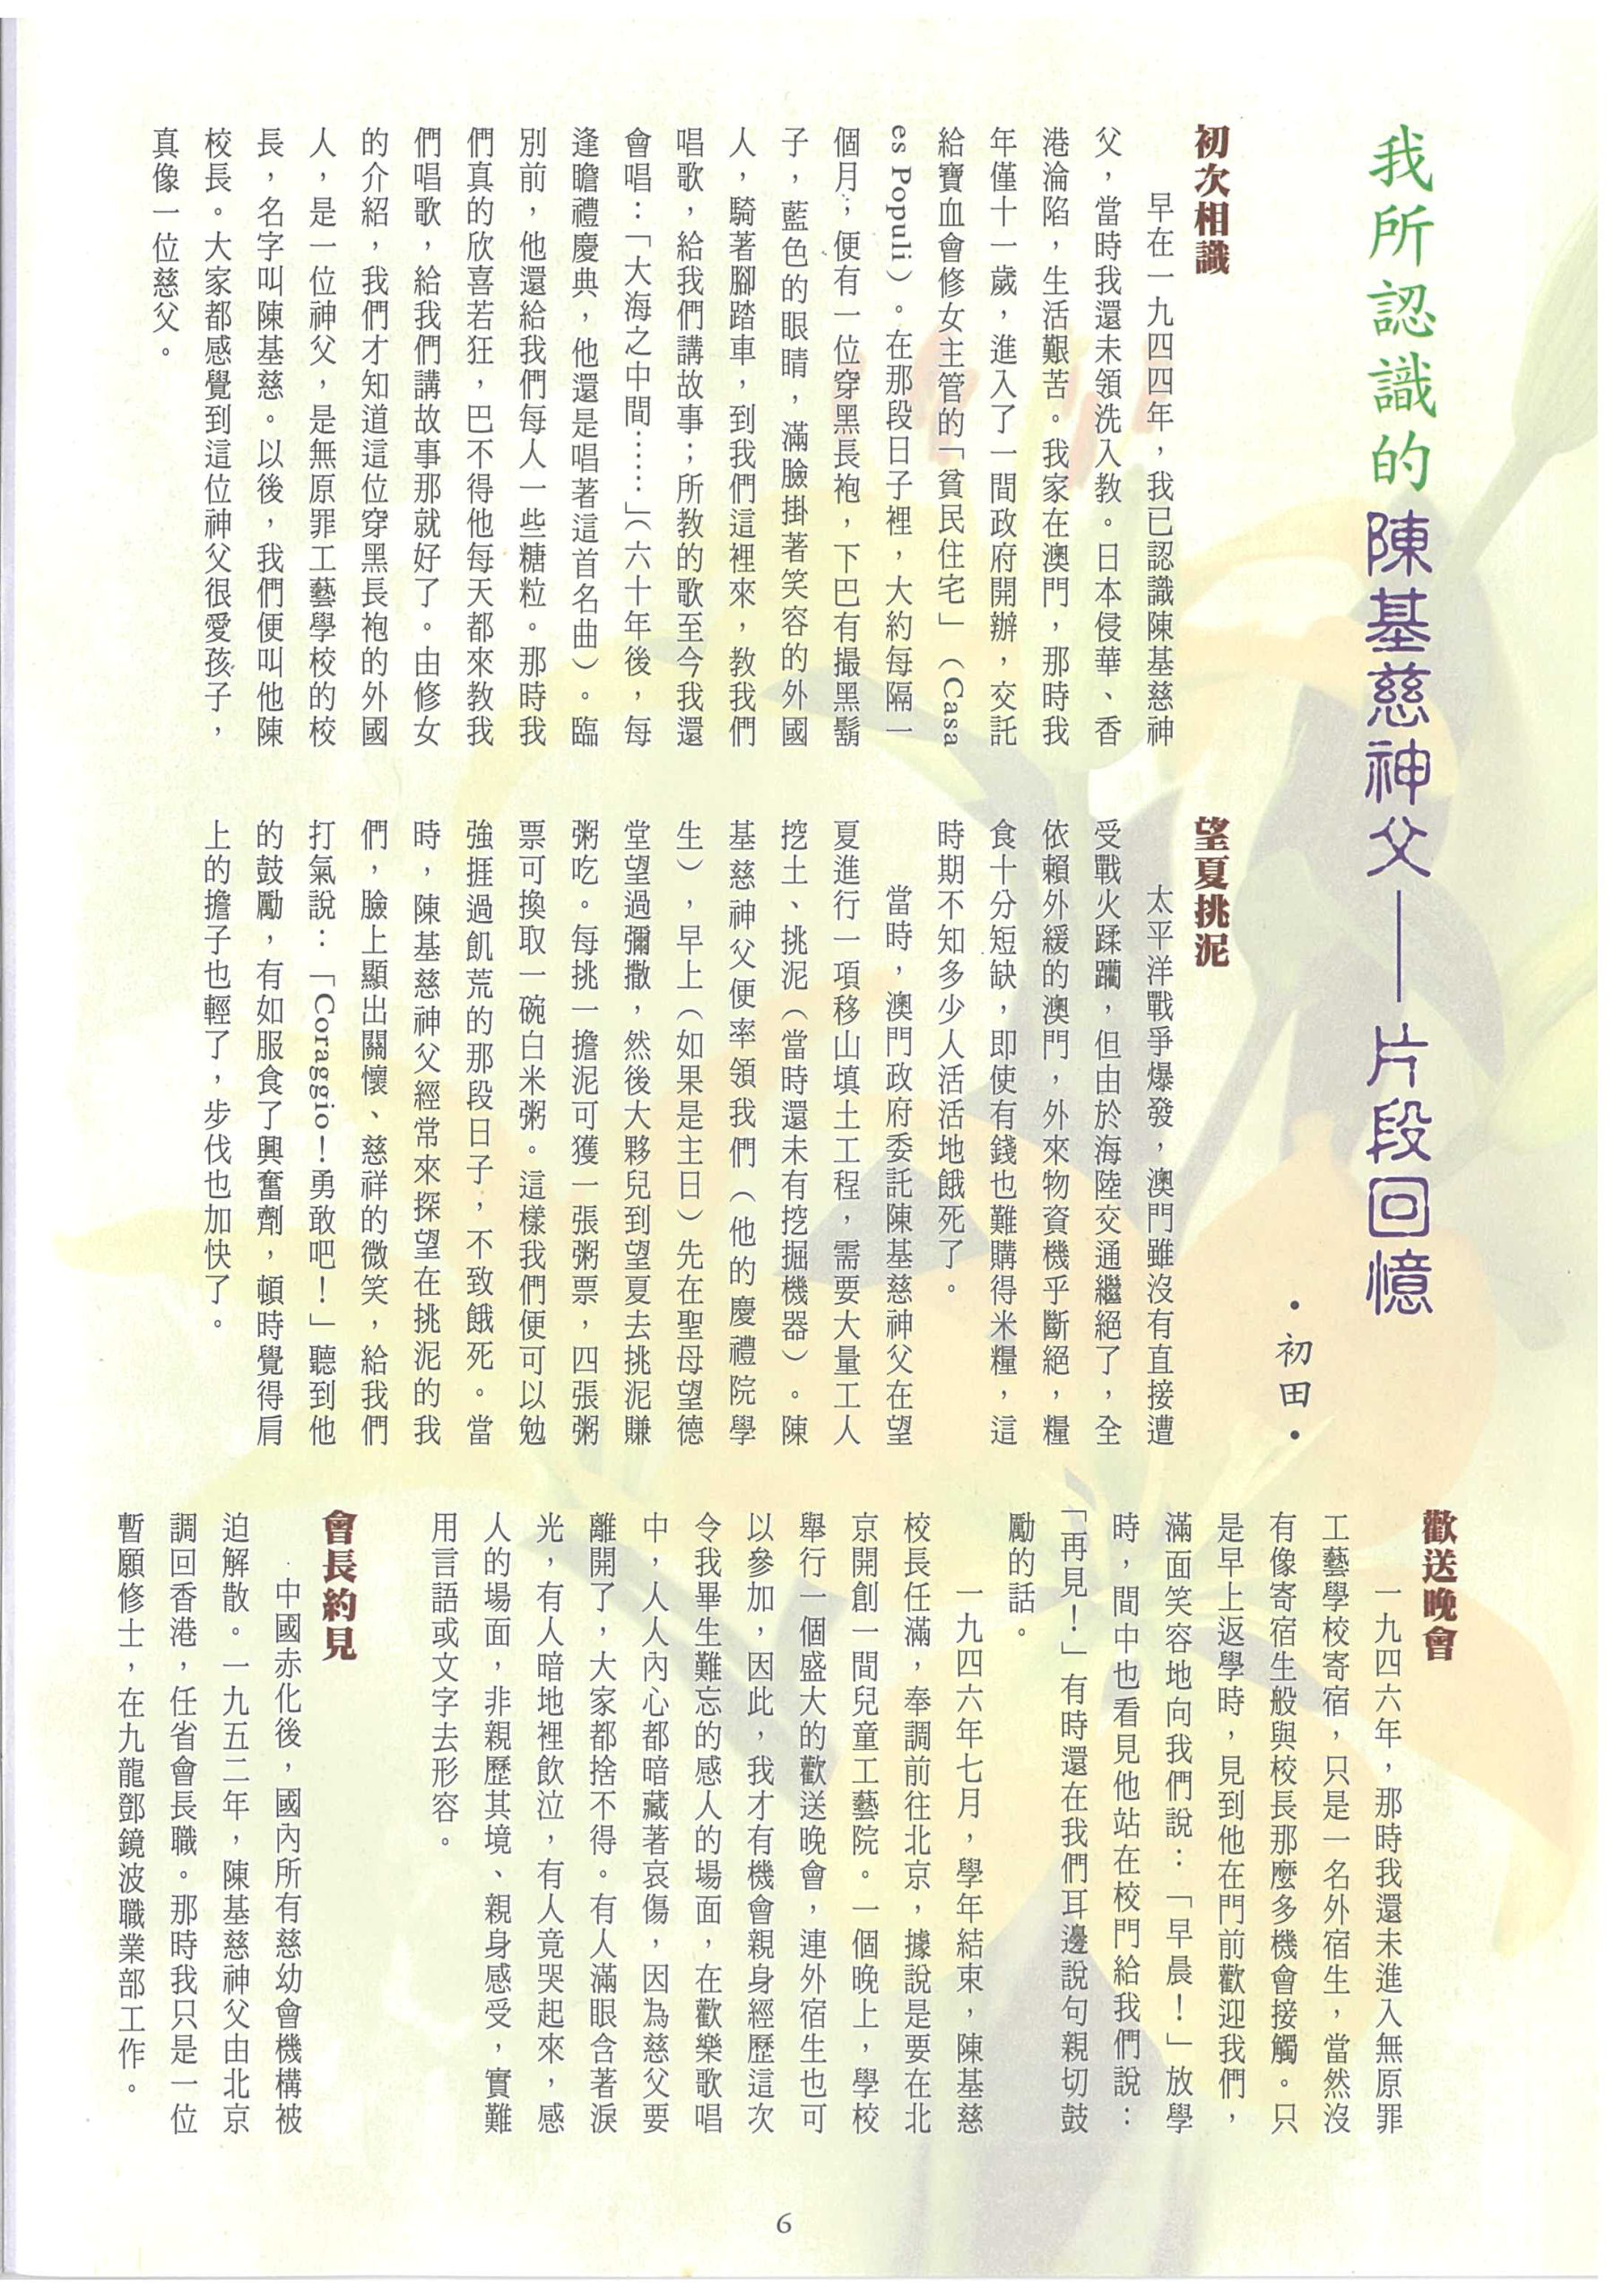 我所認識的陳基慈神父——片段回憶
•初田•
初次相識
早在一九四四年，我已認識陳基慈神
父，當時我還未領洗入教。日本侵華、香
港淪陷，生活艱苦。我家在澳門，那時我
年僅十一歲，進入了一間政府開辦，交託
給寶血會修女主管的「貧民住宅」（Casa
es Populi）。在那段日子裡，大約每隔一
個月，便有一位穿黑長袍，下巴有撮黑鬍
子，藍色的眼睛，滿臉掛著笑容的外國
人，騎著腳踏車，到我們這裡來，教我們
唱歌，給我們講故事；所教的歌至今我還
會唱：「大海之中間……」（六十年後，每
逢瞻禮慶典，他還是唱著這首名曲）。臨
別前，他還給我們每人一些糖粒。那時我
們真的欣喜若狂，巴不得他每天都來教我
們唱歌，給我們講故事那就好了。由修女
的介紹，我們才知道這位穿黑長袍的外國
人，是一位神父，是無原罪工藝學校的校
長，名字叫陳基慈。以後，我們便叫他陳
校長。大家都感覺到這位神父很愛孩子，
真像一位慈父。
望夏挑泥
太平洋戰爭爆發，澳門雖沒有直接遭
受戰火蹂躪，但由於海陸交通繼絕了，全
依賴外緩的澳門，外來物資機乎斷絕，糧
食十分短缺，即使有錢也難購得米糧，這
時期不知多少人活活地餓死了。
當時，澳門政府委託陳基慈神父在望
夏進行一項移山填土工程，需要大量工人
挖土、挑泥（當時還未有挖掘機器）。陳
基慈神父便率領我們（他的慶禮院學
生），早上（如果是主日）先在聖母望德
堂望過彌撒，然後大夥兒到望夏去挑泥賺
粥吃。每挑一擔泥可獲一張粥票，四張粥
票可換取一碗白米粥。這樣我們便可以勉
強捱過飢荒的那段日子，不致餓死。當
時，陳基慈神父經常來探望在挑泥的我
們，臉上顯出關懷、慈祥的微笑，給我們
打氣說：「Coraggio！勇敢吧！」聽到他
的鼓勵，有如服食了興奮劑，頓時覺得肩
上的擔子也輕了，步伐也加快了。
歡送晚會
一九四六年，那時我還未進入無原罪
工藝學校寄宿，只是一名外宿生，當然沒
有像寄宿生般與校長那麼多機會接觸。只
是早上返學時，見到他在門前歡迎我們，
滿面笑容地向我們說：「早晨！」放學
時，間中也看見他站在校門給我們說：
「再見！」有時還在我們耳邊說句親切鼓
勵的話。
一九四六年七月，學年結束，陳基慈
校長任滿，奉調前往北京，據說是要在北
京開創一間兒童工藝院。一個晚上，學校
舉行一個盛大的歡送晚會，連外宿生也可
以參加，因此，我才有機會親身經歷這次
令我畢生難忘的感人的場面，在歡樂歌唱
中，人人內心都暗藏著哀傷，因為慈父要
離開了，大家都捨不得。有人滿眼含著淚
光，有人暗地裡飲泣，有人竟哭起來，感
人的場面，非親歷其境、親身感受，實難
用言語或文字去形容。
會長約見
中國赤化後，國內所有慈幼會機構被
迫解散。一九五二年，陳基慈神父由北京
調回香港，任省會長職。那時我只是一位
暫願修士，在九龍鄧鏡波職業部工作。
6